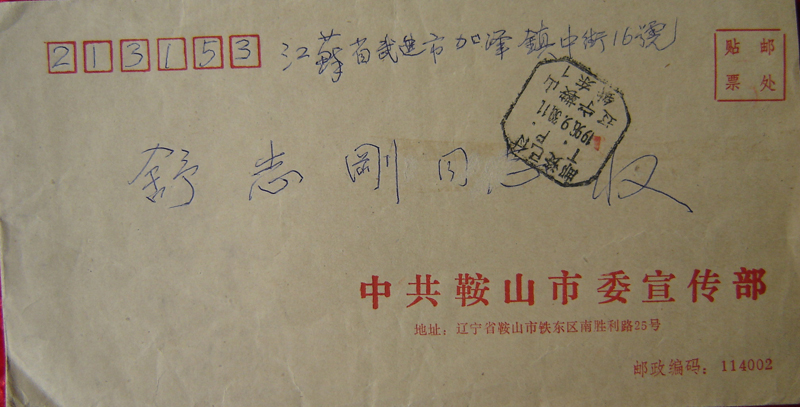 213153 江蘇省武進市加泽鎮中街16號
贴 邮
票 处
邮资已付
T.P.
1996.9.30.11
辽宁鞍山
铁东1
舒志剛同志收
中共鞍山市委宣传部
地址：辽宁省鞍山市铁东区南胜利路25号
邮政编码：114002